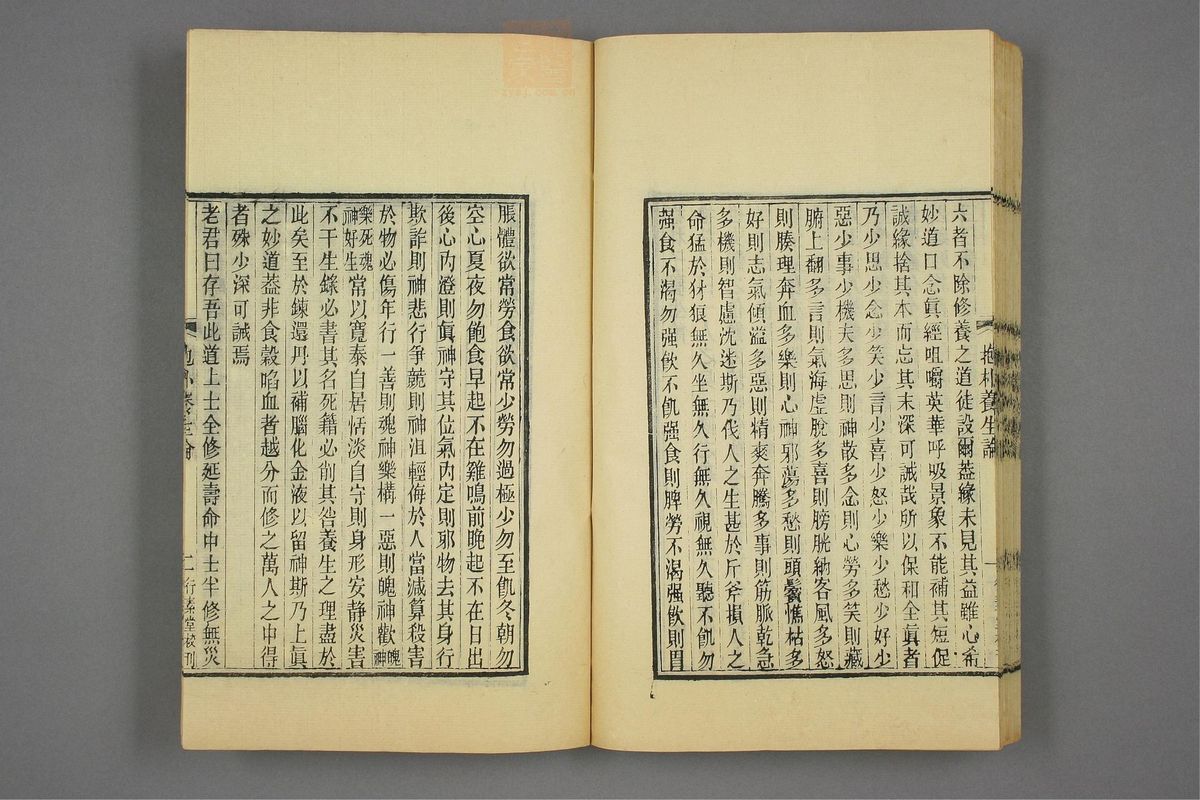 六者不除修養之道徒設爾葢緣未見其益雖心希
妙道口念眞經咀嚼英華呼吸景象不能補其短促
誠緣捨其本而忘其末深可誡哉所以保和全眞者
乃少思少念少笑少言少喜少怒少樂少愁少好少
惡少事少機夫多思則神散多念則心勞多笑則藏
腑上翻多言則氣海虛脫多喜則膀胱納客風多怒
則腠理奔血多樂則心神邪蕩多愁則頭鬢憔枯多
好則志氣傾溢多惡則精爽奔騰多事則筋脈乾急
多機則智慮沈迷斯乃伐人之生甚於斤斧損人之
命猛於犲狼無久坐無久行無久視無久聽不飢勿
强食不渴勿强飮不飢强食則脾勞不渴强飮則胃
抱朴養生論
脹體欲常勞食欲常少勞勿過極少勿至飢冬朝勿
空心夏夜勿飽食早起不在雞鳴前晚起不在日出
後心內澄則眞神守其位氣內定則邪物去其身行
欺詐則神悲行爭競則神沮輕侮於人當減算殺害
於物必傷年行一善則魂神樂構一惡則魄神歡魄神
樂死魂神好生常以寬泰自居恬淡自守則身形安静災害
不干生籙必書其名死籍必削其咎養生之理盡於
此矣至於鍊還丹以補腦化金液以留神斯乃上眞
之妙道葢非食穀啗血者越分而修之萬人之中得
者殊少深可誡焉
老君曰存吾此道上士全修延壽命中士半修無災
二
行素堂校刊